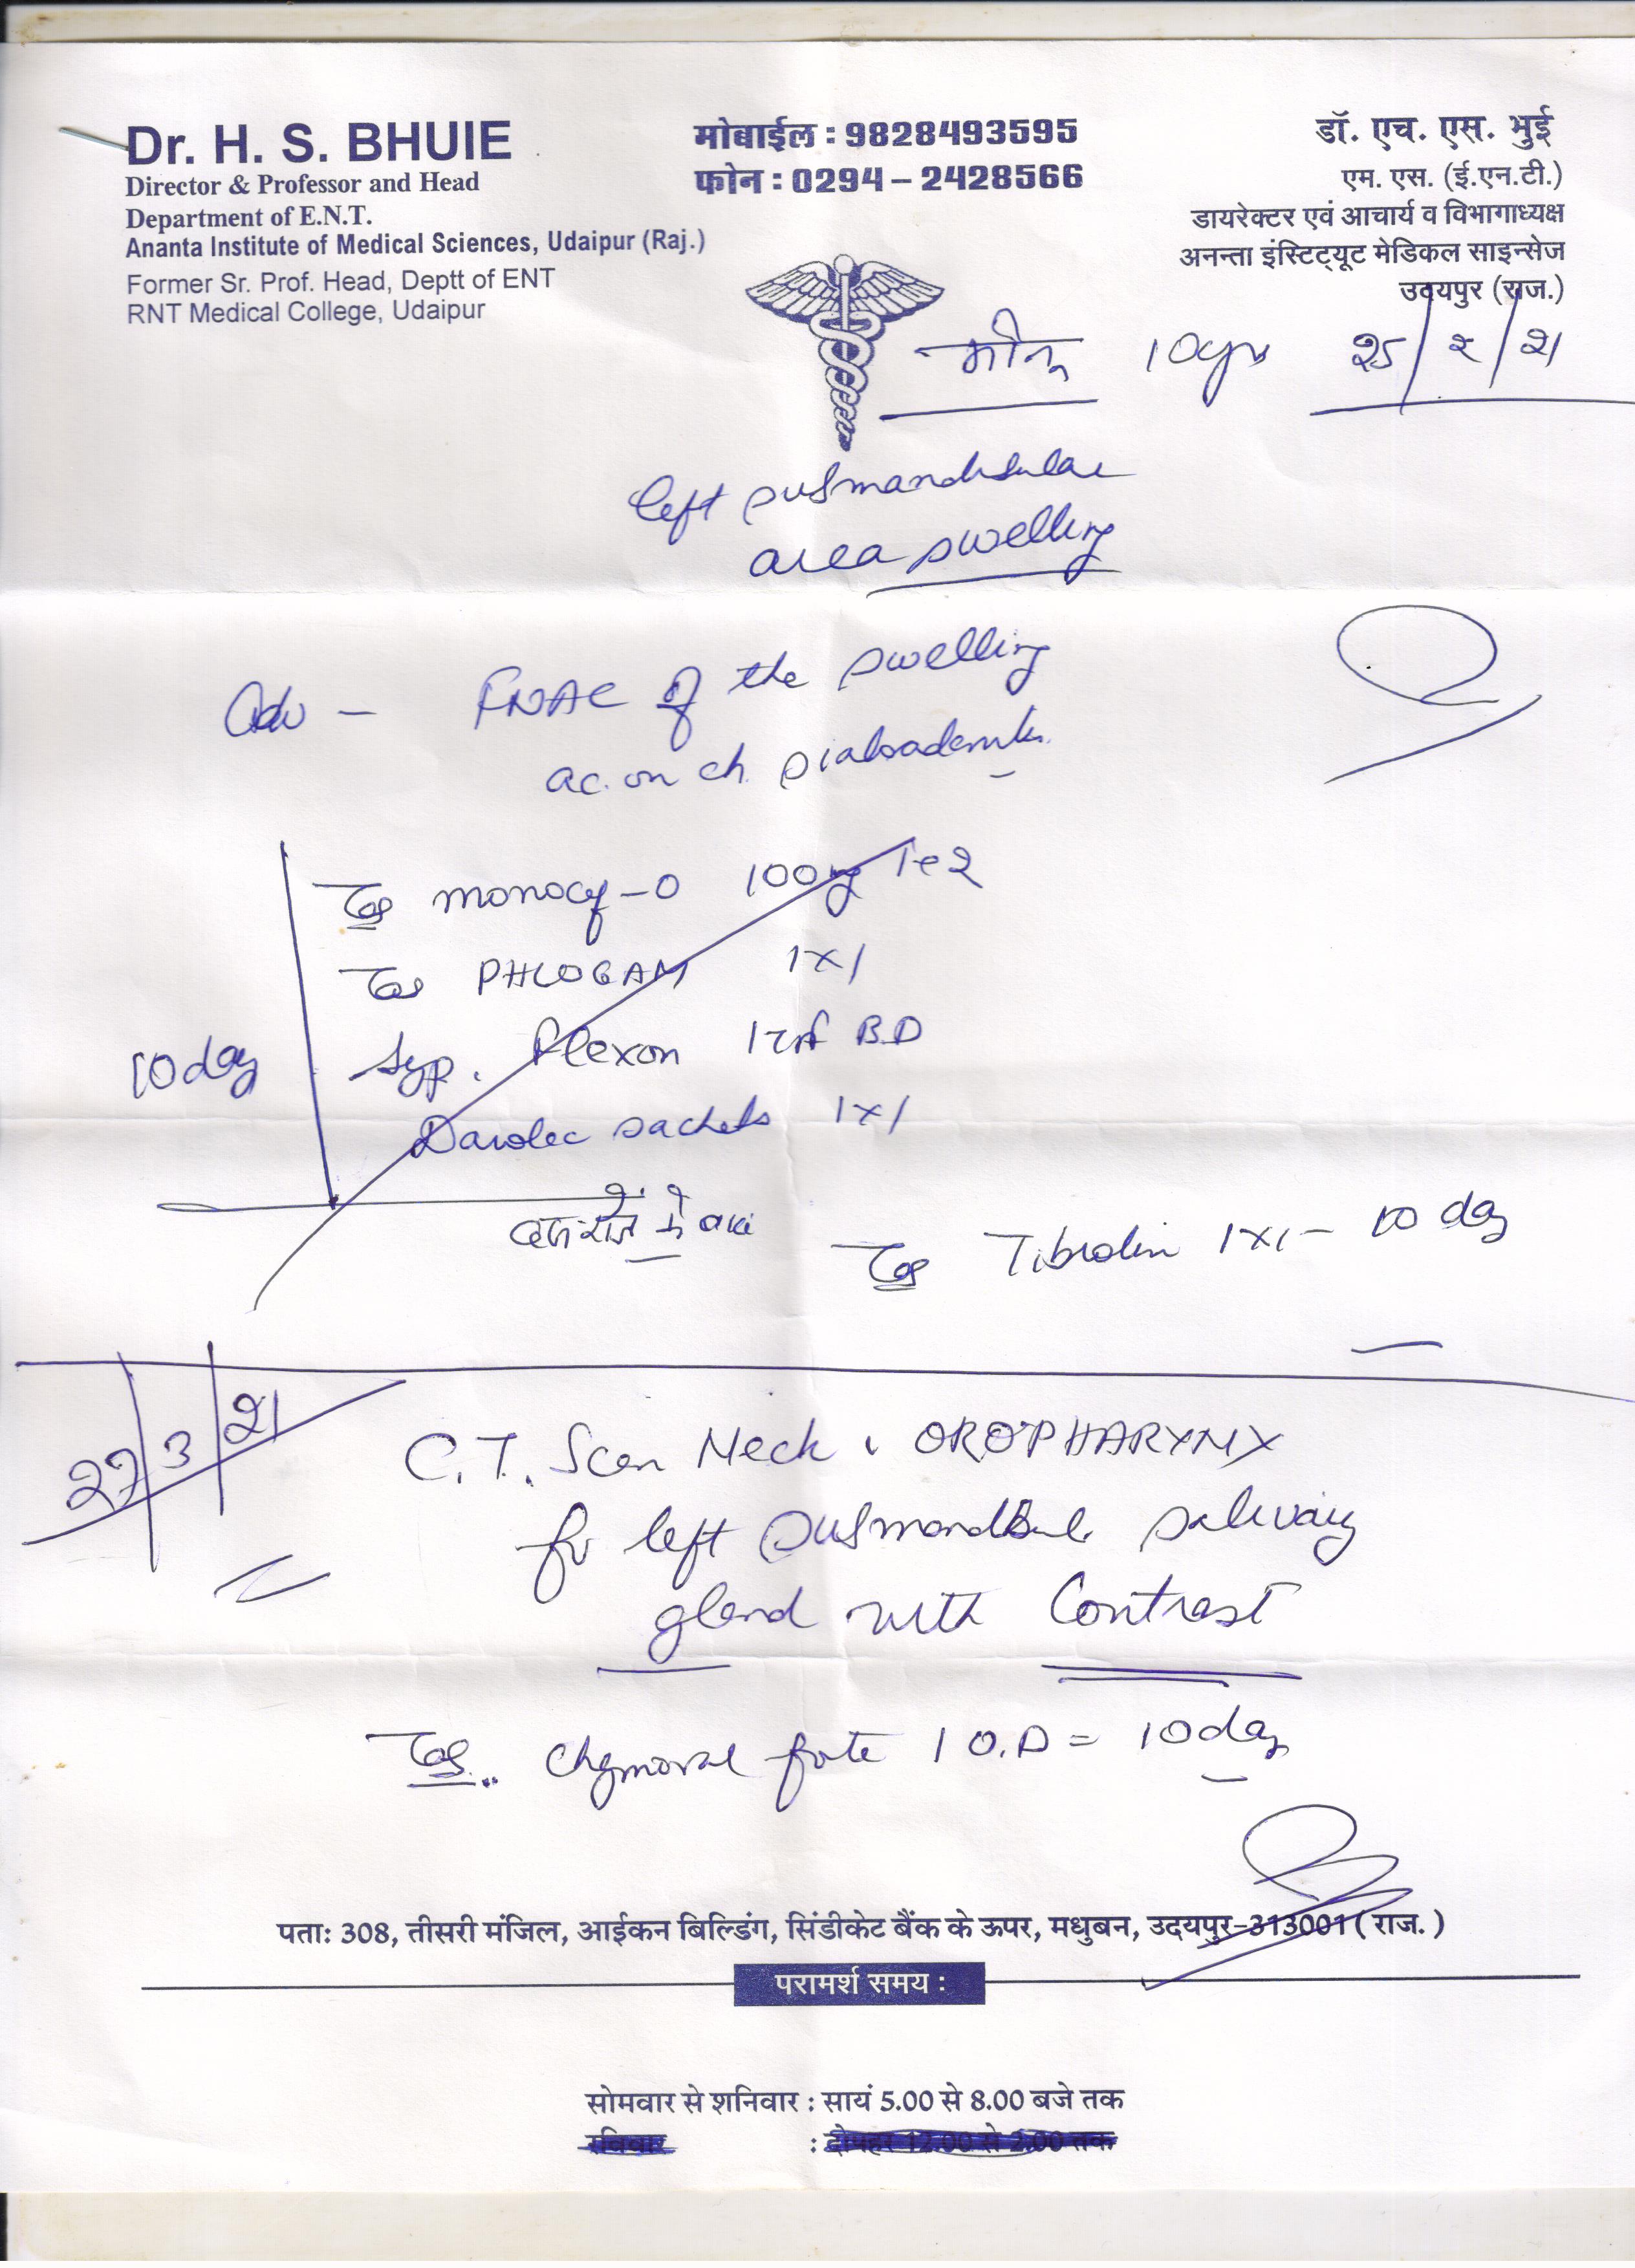 Dr. H. S. BHUIE
Director & Professor and Head
Department of E.N.T.
Ananta Institute of Medical Sciences, Udaipur (Raj.)
Former Sr. Prof. Head, Deptt of ENT
RNT Medical College, Udaipur
मोबाईल : 9828493595
फोन : 0294 – 2428566
डॉ. एच. एस. भुई
एम. एस. (ई.एन.टी.)
डायरेक्टर एवं आचार्य व विभागाध्यक्ष
अनन्ता इंस्टिट्यूट मेडिकल साइन्सेज
उदयपुर (राज.)
10yrs २५/२/२1
left submandibular
area swelling
Adv – FNAC of the swelling
ac. on ch. sialoadenitis
Tab monocef-O 100mg 1e२
Tab PHLOGAM 1x1
10 day Syp. flexon 1 tsf B.D
Darolac sachets 1x1
Tab Tibrolin 1x1 – 10 day
२७/3/२1
C.T. Scan Neck, OROPHARYNX
for left submandibular salivary
gland with Contrast
Tab.. Chymoral forte 1 O.D = 10 day
पताः 308, तीसरी मंजिल, आईकन बिल्डिंग, सिंडीकेट बैंक के ऊपर, मधुबन, उदयपुर-313001 ( राज. )
परामर्श समय :
सोमवार से शनिवार : सायं 5.00 से 8.00 बजे तक
रविवार : दोपहर 12.00 से 2.00 तक